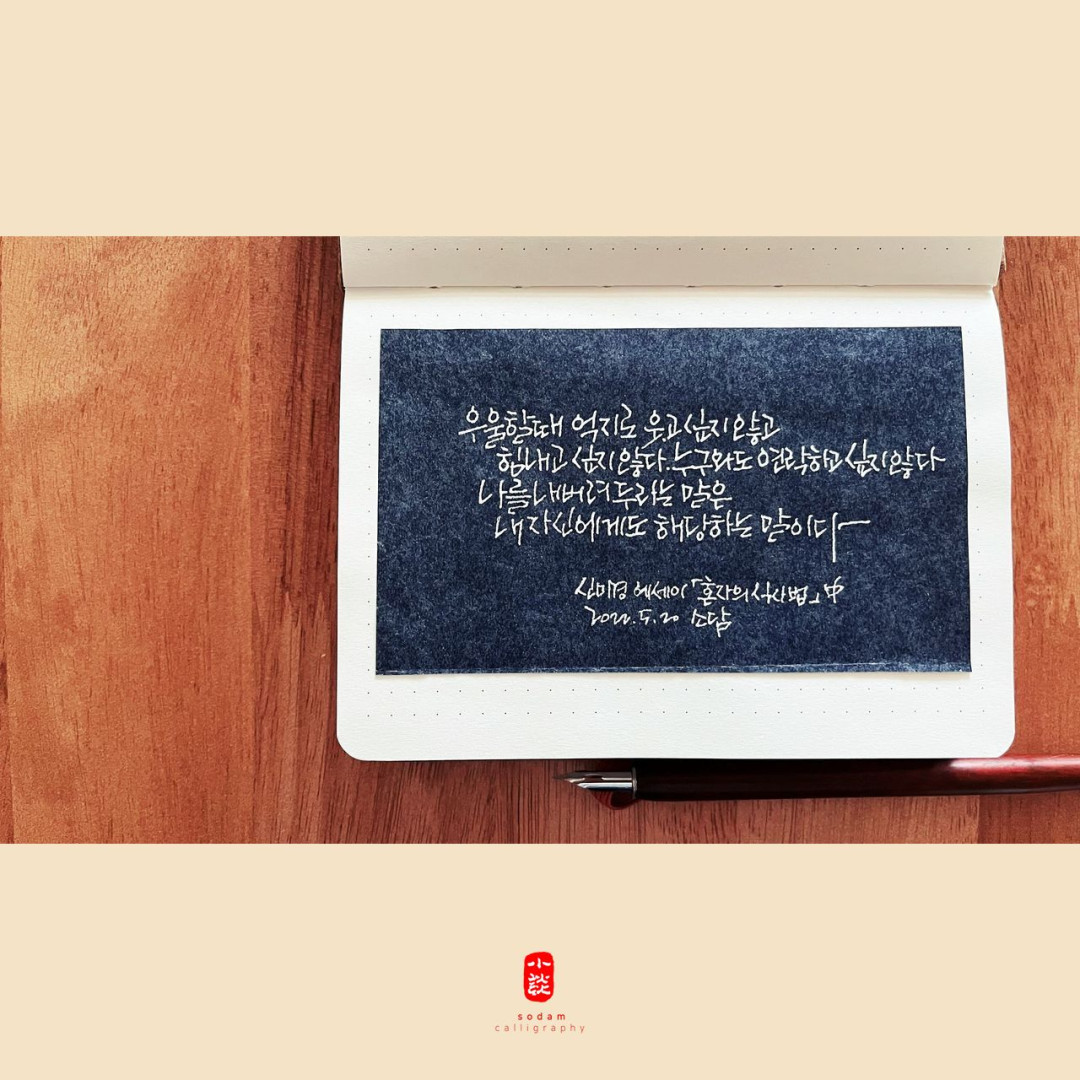 우울할때 억지로 웃고싶지않고
힘내고 싶지않다.누구와도 연락하고싶지않다
나를 내버려두라는 말은
내 자신에게도 해당하는 말이다
에세이,「혼자의 中
2022.5.20 소담
小談
sodam
calligraphy